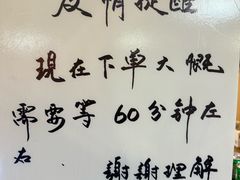 友情提醒
现在下单大概
需要等60分钟左
右
謝謝理解